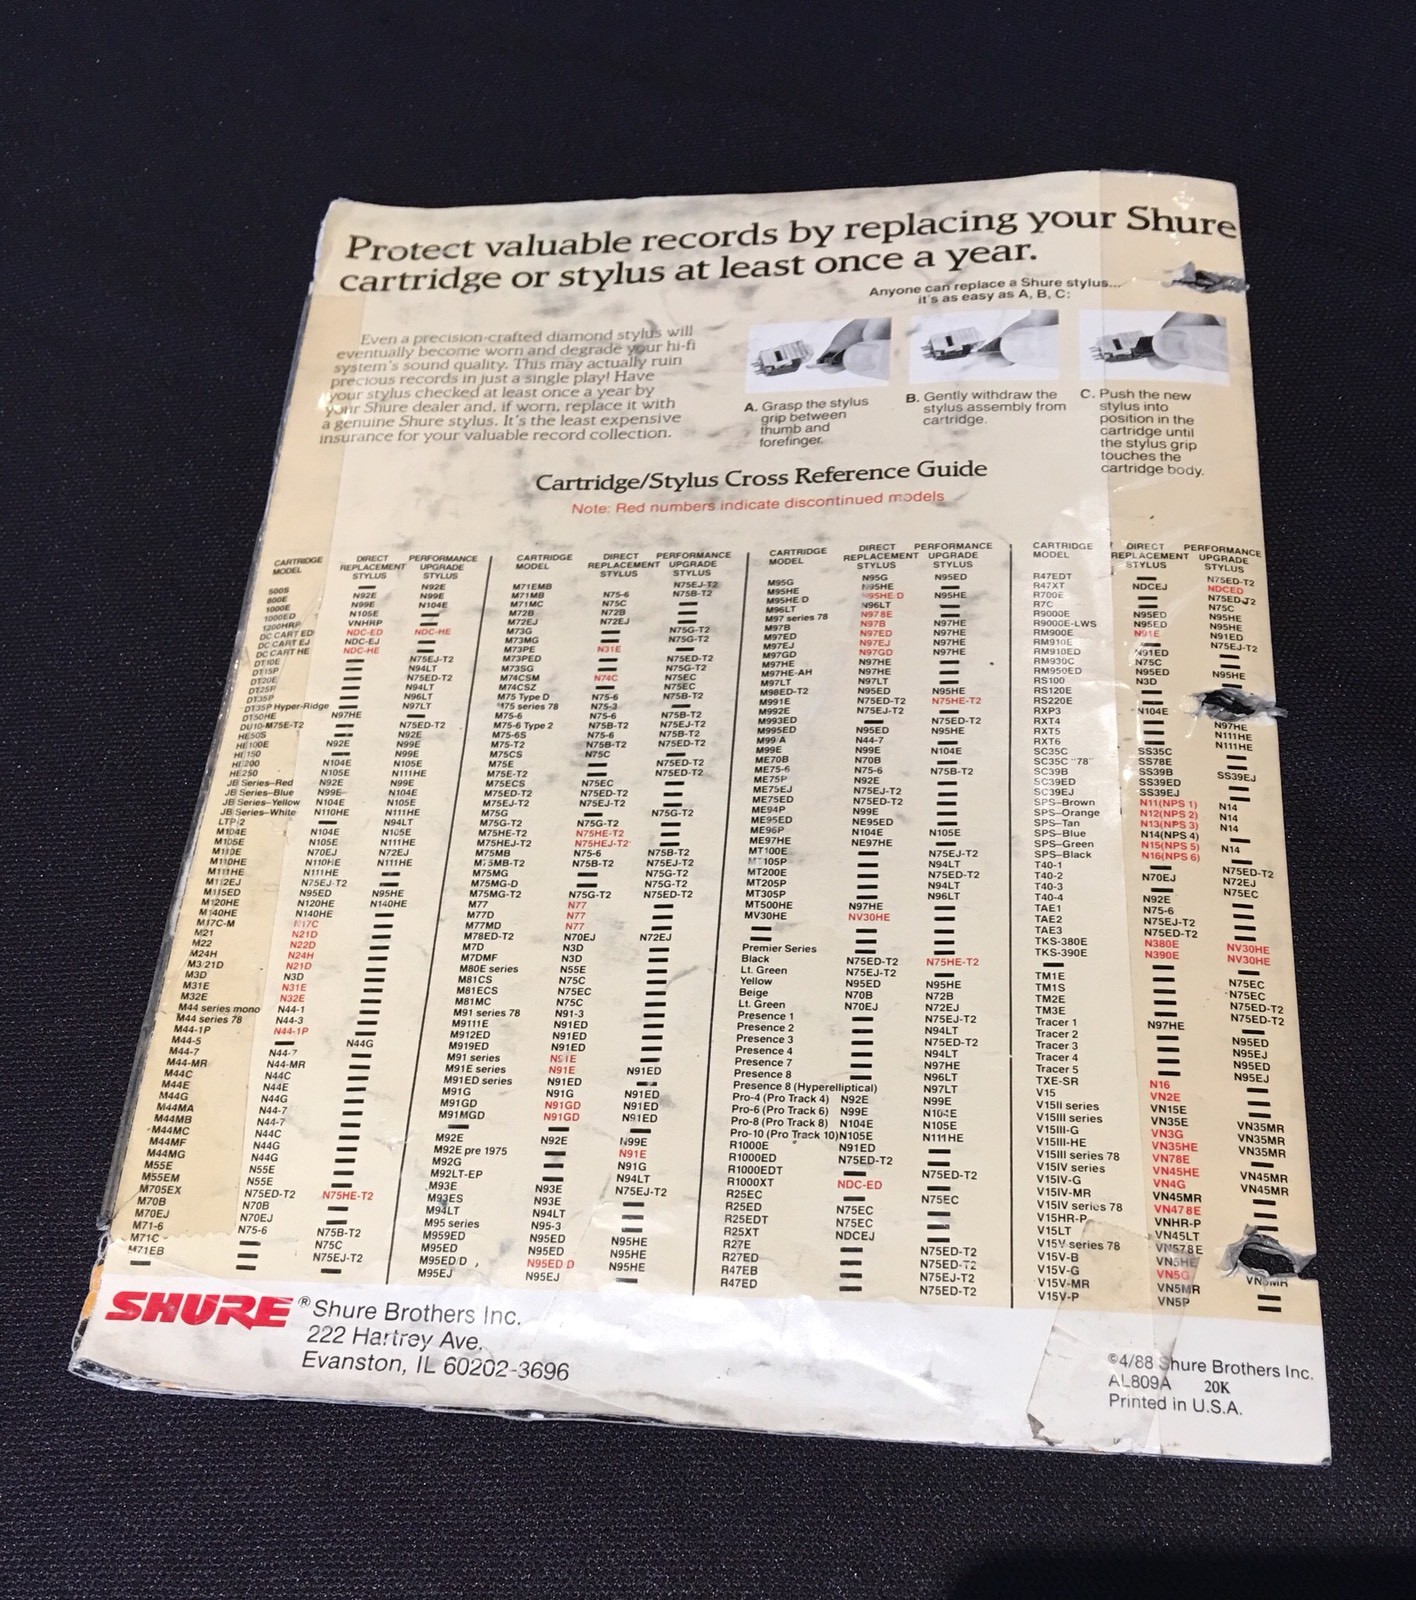 Protect valuable records by replacing your Shure
cartridge or stylus at least once a year.
Anyone can replace a Shure stylus...
it's as easy as A, B, C:
Even a precision-crafted diamond stylus will
eventually become worn and degrade your hi-fi
system's sound quality. This may actually ruin
precious records in just a single play! Have
your stylus checked at least once a year by
your Shure dealer and, if worn, replace it with
a genuine Shure stylus. It's the least expensive
insurance for your valuable record collection.
A. Grasp the stylus
grip between
thumb and
forefinger.
B. Gently withdraw the
stylus assembly from
cartridge.
C. Push the new
stylus into
position in the
cartridge until
the stylus grip
touches the
cartridge body.
Cartridge/Stylus Cross Reference Guide
Note: Red numbers indicate discontinued models
CARTRIDGE MODEL DIRECT REPLACEMENT STYLUS PERFORMANCE UPGRADE STYLUS
500S — N92E
800E N92E N99E
1000E N99E N104E
1000ED N105E —
1200HRP VNHRP —
DC CART ED NDC-ED NDC-HE
DC CART EJ NDC-EJ
DC CART HE NDC-HE
DT10E — N75EJ-T2
DT15P — N94LT
DT20E — N75ED-T2
DT25P — N94LT
DT35P — N96LT
DT35P Hyper-Ridge — N97LT
DT50HE N97HE —
DU10-M75E-T2 — N75ED-T2
HE50S — N92E
HE100E N92E N99E
HE150 — N99E
HE200 N104E N105E
HE250 N105E N111HE
JB Series–Red N92E N99E
JB Series–Blue N99E N104E
JB Series–Yellow N104E N105E
JB Series–White N110HE N111HE
LTP-2 — N94LT
M104E N104E N105E
M105E N105E N111HE
M110E N70EJ N72EJ
M110HE N110HE N111HE
M111HE N111HE —
M112EJ N75EJ-T2 —
M115ED N95ED N95HE
M120HE N120HE N140HE
M140HE N140HE —
M17C-M N17C
M21 N21D
M22 N22D
M24H N24H
M3/21D N21D
M3D N3D
M31E N31E
M32E N32E
M44 series mono N44-1
M44 series 78 N44-3
M44-1P N44-1P
M44-5 — N44G
M44-7 N44-7
M44-MR N44-MR
M44C N44C
M44E N44E
M44G N44G
M44MA N44-7
M44MB N44-7
M44MC N44C
M44MF N44G
M44MG N44G
M55E N55E
M55EM N55E
M705EX N75ED-T2 N75HE-T2
M70B N70B
M70EJ N70EJ
M71-6 N75-6 N75B-T2
M71C — N75C
M71EB — N75EJ-T2
CARTRIDGE MODEL DIRECT REPLACEMENT STYLUS PERFORMANCE UPGRADE STYLUS
M71EMB — N75EJ-T2
M71MB N75-6 N75B-T2
M71MC N75C
M72B N72B
M72EJ N72EJ
M73G — N75G-T2
M73MG — N75G-T2
M73PE N31E
M73PED — N75ED-T2
M73SG — N75G-T2
M74CSM N74C N75EC
M74CSZ — N75EC
M75 Type D N75-6 N75B-T2
M75 series 78 N75-3
M75-6 N75-6 N75B-T2
M75-6 Type 2 N75B-T2 N75EJ-T2
M75-6S N75-6 N75B-T2
M75-T2 N75B-T2 N75ED-T2
M75CS N75C
M75E — N75ED-T2
M75E-T2 — N75ED-T2
M75ECS N75EC
M75ED-T2 N75ED-T2
M75EJ-T2 N75EJ-T2
M75G — N75G-T2
M75G-T2 N75G-T2
M75HE-T2 N75HE-T2
M75HEJ-T2 N75HEJ-T2
M75MB N75-6 N75B-T2
M75MB-T2 N75B-T2 N75EJ-T2
M75MG — N75G-T2
M75MG-D — N75G-T2
M75MG-T2 N75G-T2 N75ED-T2
M77 N77
M77D N77
M77MD N77
M78ED-T2 N70EJ N72EJ
M7D N3D
M7DMF N3D
M80E series N55E
M81CS N75C
M81ECS N75EC
M81MC N75C
M91 series 78 N91-3
M9111E N91ED
M912ED N91ED
M919ED N91ED
M91 series N91E
M91E series N91E N91ED
M91ED series N91ED —
M91G N91G N91ED
M91GD N91GD N91ED
M91MGD N91GD N91ED
M92E N92E N99E
M92E pre 1975 — N91E
M92G — N91G
M92LT-EP — N94LT
M93E N93E N75EJ-T2
M93ES N93E
M94LT N94LT
M95 series N95-3
M959ED N95ED N95HE
M95ED N95ED N95HE
M95ED/D N95ED D N95HE
M95EJ N95EJ
CARTRIDGE MODEL DIRECT REPLACEMENT STYLUS PERFORMANCE UPGRADE STYLUS
M95G N95G N95ED
M95HE N95HE —
M95HE D N95HE D N95HE
M96LT N96LT
M97 series 78 N978E
M97B N97B N97HE
M97ED N97ED N97HE
M97EJ N97EJ N97HE
M97GD N97GD N97HE
M97HE N97HE
M97HE-AH N97HE
M97LT N97LT
M98ED-T2 N95ED N95HE
M991E N75ED-T2 N75HE-T2
M992E N75EJ-T2
M993ED — N75ED-T2
M995ED N95ED N95HE
M99 A N44-7
M99E N99E N104E
ME70B N70B
ME75-6 N75-6 N75B-T2
ME75P N92E
ME75EJ N75EJ-T2
ME75ED N75ED-T2
ME94P N99E
ME95ED NE95ED
ME96P N104E N105E
ME97HE NE97HE
MT100E — N75EJ-T2
MT105P — N94LT
MT200E — N75ED-T2
MT205P — N94LT
MT305P — N96LT
MT500HE N97HE
MV30HE NV30HE
Premier Series
Black N75ED-T2 N75HE-T2
Lt. Green N75EJ-T2
Yellow N95ED N95HE
Beige N70B N72B
Lt. Green N70EJ N72EJ
Presence 1 — N75EJ-T2
Presence 2 — N94LT
Presence 3 — N75ED-T2
Presence 4 — N94LT
Presence 7 — N97HE
Presence 8 — N96LT
Presence 8 (Hyperelliptical) N97LT
Pro-4 (Pro Track 4) N92E N99E
Pro-6 (Pro Track 6) N99E N104E
Pro-8 (Pro Track 8) N104E N105E
Pro-10 (Pro Track 10) N105E N111HE
R1000E N91ED
R1000ED N75ED-T2
R1000EDT — N75ED-T2
R1000XT NDC-ED
R25EC — N75EC
R25ED N75EC
R25EDT N75EC
R25XT NDCEJ
R27E — N75ED-T2
R27ED — N75ED-T2
R47EB — N75EJ-T2
R47ED — N75ED-T2
CARTRIDGE MODEL DIRECT REPLACEMENT STYLUS PERFORMANCE UPGRADE STYLUS
R47EDT — N75ED-T2
R47XT NDCEJ NDCED
R700E — N75ED-T2
R7C — N75C
R9000E N95ED N95HE
R9000E-LWS N95ED N95HE
RM900E N91E N91ED
RM910E — N75EJ-T2
RM910ED N91ED
RM930C N75C
RM950ED N95ED N95HE
RS100 N3D
RS120E
RS220E
RXP3 N104E
RXT4 — N97HE
RXT5 — N111HE
RXT6 — N111HE
SC35C SS35C
SC35C "78" SS78E
SC39B SS39B SS39EJ
SC39ED SS39ED
SC39EJ SS39EJ
SPS–Brown N11(NPS 1) N14
SPS–Orange N12(NPS 2) N14
SPS–Tan N13(NPS 3) N14
SPS–Blue N14(NPS 4)
SPS–Green N15(NPS 5) N14
SPS–Black N16(NPS 6)
T40-1 — N75ED-T2
T40-2 N70EJ N72EJ
T40-3 — N75EC
T40-4 N92E
TAE1 N75-6
TAE2 N75EJ-T2
TAE3 N75ED-T2
TKS-380E N380E NV30HE
TKS-390E N390E NV30HE
TM1E — N75EC
TM1S — N75EC
TM2E — N75ED-T2
TM3E — N75ED-T2
Tracer 1 N97HE
Tracer 2 — N95ED
Tracer 3 — N95EJ
Tracer 4 — N95ED
Tracer 5 — N95EJ
TXE-SR
V15 N16
V15II series VN2E
V15III series VN15E
V15III-G VN35E VN35MR
V15III-HE VN3G VN35MR
V15III series 78 VN35HE VN35MR
V15IV series VN78E
V15IV-G VN45HE VN45MR
V15IV-MR VN4G VN45MR
V15IV series 78 VN45MR
V15HR-P VN478E
V15LT VNHR-P
V15V series 78 VN45LT
V15V-B VN578E
V15V-G VN5HE
V15V-MR VN5G VN5MR
V15V-P VN5MR
VN5P
SHURE ® Shure Brothers Inc.
222 Hartrey Ave.
Evanston, IL 60202-3696
©4/88 Shure Brothers Inc.
AL809A 20K
Printed in U.S.A.